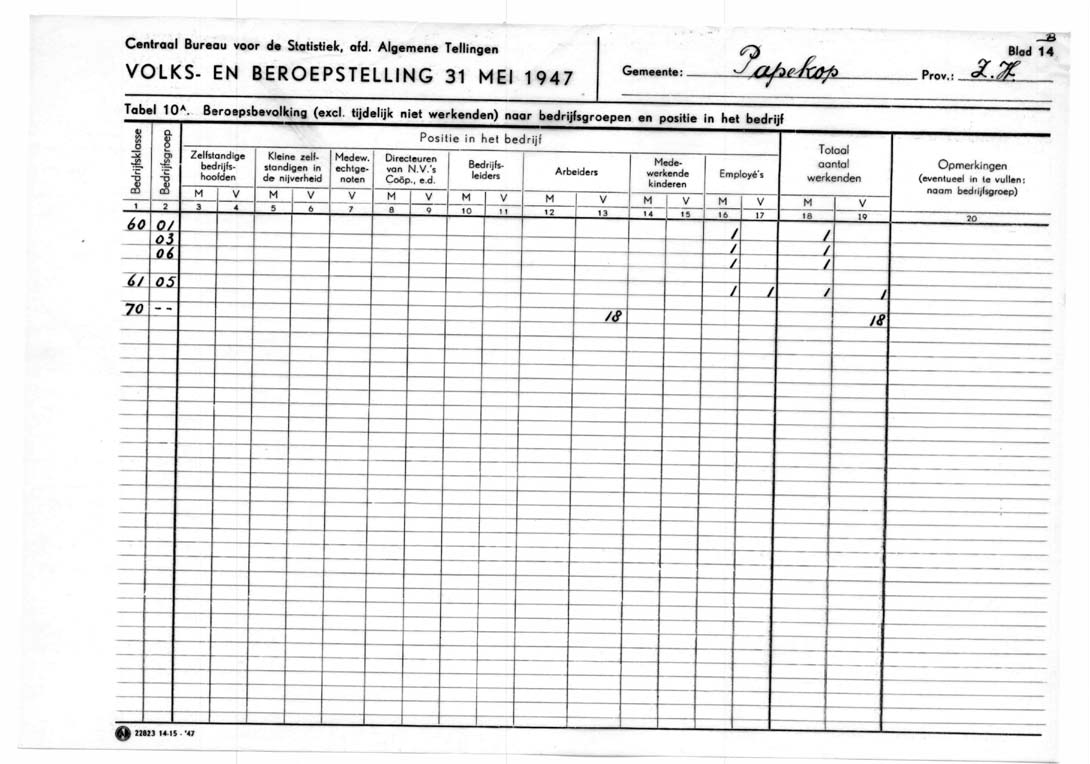 B
Centraal Bureau voor de Statistiek, afd. Algemene Tellingen
Blad 14
VOLKS- EN BEROEPSTELLING 31 MEI 1947
Gemeente: Papekop Prov.: Z.H.
Tabel 10ᴬ. Beroepsbevolking (excl. tijdelijk niet werkenden) naar bedrijfsgroepen en positie in het bedrijf
Bedrijfsklasse
Bedrijfsgroep
Positie in het bedrijf
Zelfstandige bedrijfs- hoofden
Kleine zelf- standigen in de nijverheid
Medew. echtge- noten
Directeuren van N.V.'s Coöp., e.d.
Bedrijfs- leiders
Arbeiders
Mede- werkende kinderen
Employé's
Totaal aantal werkenden
Opmerkingen (eventueel in te vullen: naam bedrijfsgroep)
M V M V V M V M V M V M V M V M V
1 2 3 4 5 6 7 8 9 10 11 12 13 14 15 16 17 18 19 20
60 01 1 1
03 1 1
06 1 1
61 05 1 1 1 1
70 -- 18 18
22823 14-15 - '47